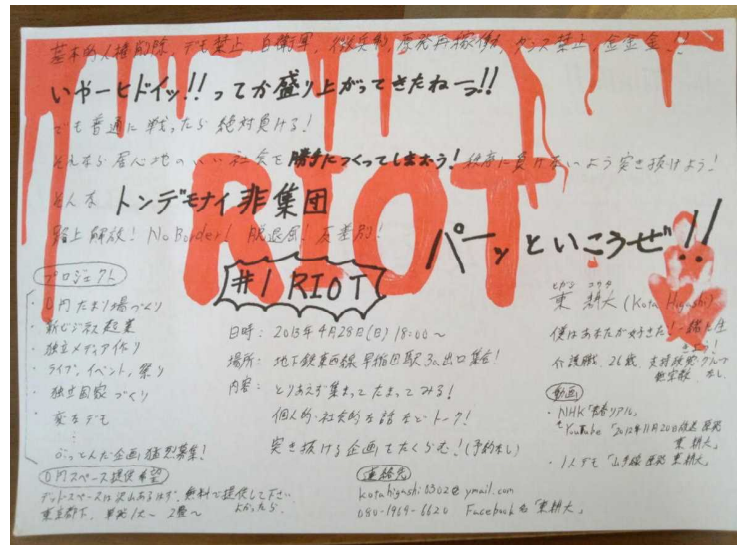 基本的人権削除、デモ禁止、自衛軍、徴兵制、原発再稼働、ダンス禁止、金金金!!
いやーヒドイッ!!ってか盛り上がってきたねーっ!!
でも普通に戦ったら絶対負ける!
それなら居心地のいい社会を勝手につくってしまおう!秩序に負けないよう突き抜けよう!
そんな トンデモナイ非集団
RIOT
路上解放! No Border! 脱退屈! 反差別!
パーッといこうぜ!!
#1 RIOT
プロジェクト
・0円たまり場づくり
・新ビジネス起業
・独立メディア作り
・ライブ、イベント、祭り
・独立国家づくり
・変なデモ
⋮
ぶっとんだ企画猛烈募集!
0円スペース提供希望
デットスペースは沢山あるはず、無料で提供して下さい
東京都下、単発1丈〜 2畳〜 よかったら。
日時:2013年4月28日(日)18:00〜
場所:地下鉄東西線 早稲田駅 3b出口集合!
内容:とりあえず集まってたまってみる!
個人的・社会的な話などトーク!
突き抜ける企画をたくらむ!(予約なし)
連絡先
kotahigashi0302@ymail.com
080-1969-6620 Facebook名「東耕大」
ヒガシ コウタ
東 耕大(Kota Higashi)
僕はあなたが好きだ!一緒に生きよう!
介護職、26歳、支持政党・グループ
無宗教 なし
動画
・NHK「青春リアル」
・YouTube「2012年11月20日
東 耕大」
・1人デモ「山手線 東 耕大」